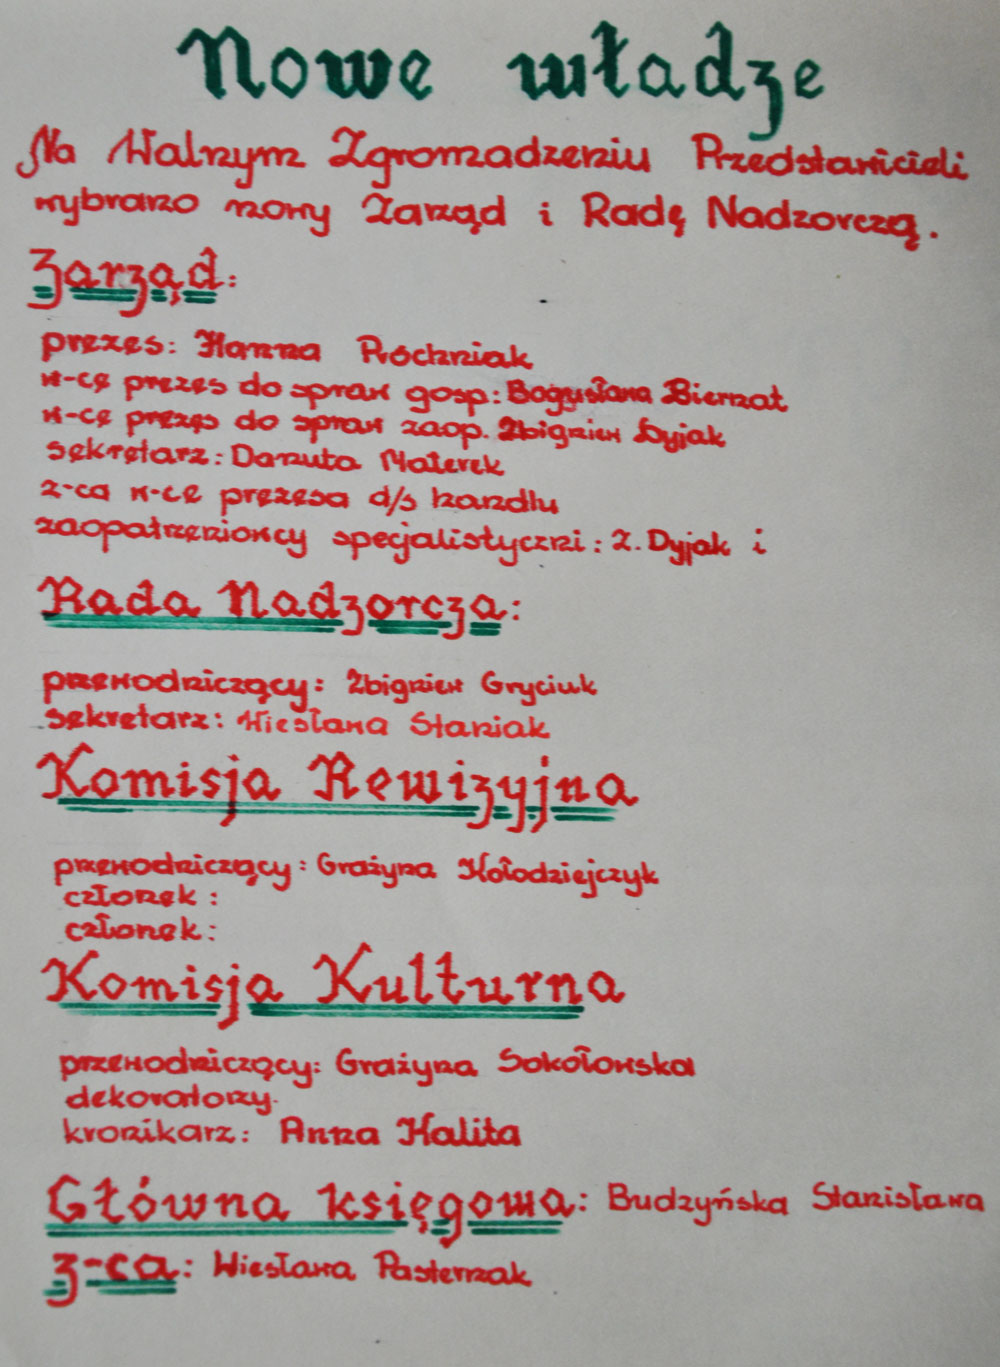 Nowe władze
Na Walnym Zgromadzeniu Przedstawicieli
wybrano nowy Zarząd i Radę Nadzorczą.
Zarząd:
prezes: Hanna Próchniak
w-cę prezes do spraw gosp: Bogusława Biernat
w-cę prezes do spraw zaop. Zbigniew Dyjak
sekretarz: Danuta Materek
z-ca w-ce prezesa d/s handlu
zaopatrzeniowcy specjalistyczni: Z. Dyjak i
Rada Nadzorcza:
przewodniczący: Zbigniew Gryciuk
sekretarz: Wiesława Staniak
Komisja Rewizyjna
przewodniczący: Grażyna Kołodziejczyk
członek:
członek:
Komisja Kulturna
przewodniczący: Grażyna Sokołowska
dekoratorzy.
kronikarz: Anna Kalita
Główna księgowa: Budzyńska Stanisława
z-ca: Wiesława Pasternak